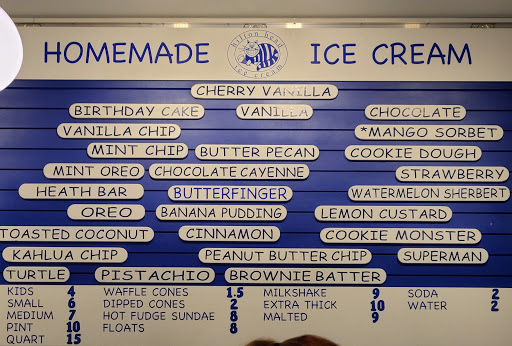 HOMEMADE hilton head ice cream ICE CREAM
CHERRY VANILLA
BIRTHDAY CAKE VANILLA CHOCOLATE
VANILLA CHIP *MANGO SORBET
MINT CHIP BUTTER PECAN COOKIE DOUGH
MINT OREO CHOCOLATE CAYENNE STRAWBERRY
HEATH BAR BUTTERFINGER WATERMELON SHERBERT
OREO BANANA PUDDING LEMON CUSTARD
TOASTED COCONUT CINNAMON COOKIE MONSTER
KAHLUA CHIP PEANUT BUTTER CHIP SUPERMAN
TURTLE PISTACHIO BROWNIE BATTER
KIDS 4 WAFFLE CONES 1.5 MILKSHAKE 9 SODA 2
SMALL 6 DIPPED CONES 2 EXTRA THICK 10 WATER 2
MEDIUM 7 HOT FUDGE SUNDAE 8 MALTED 9
PINT 10 FLOATS 8
QUART 15